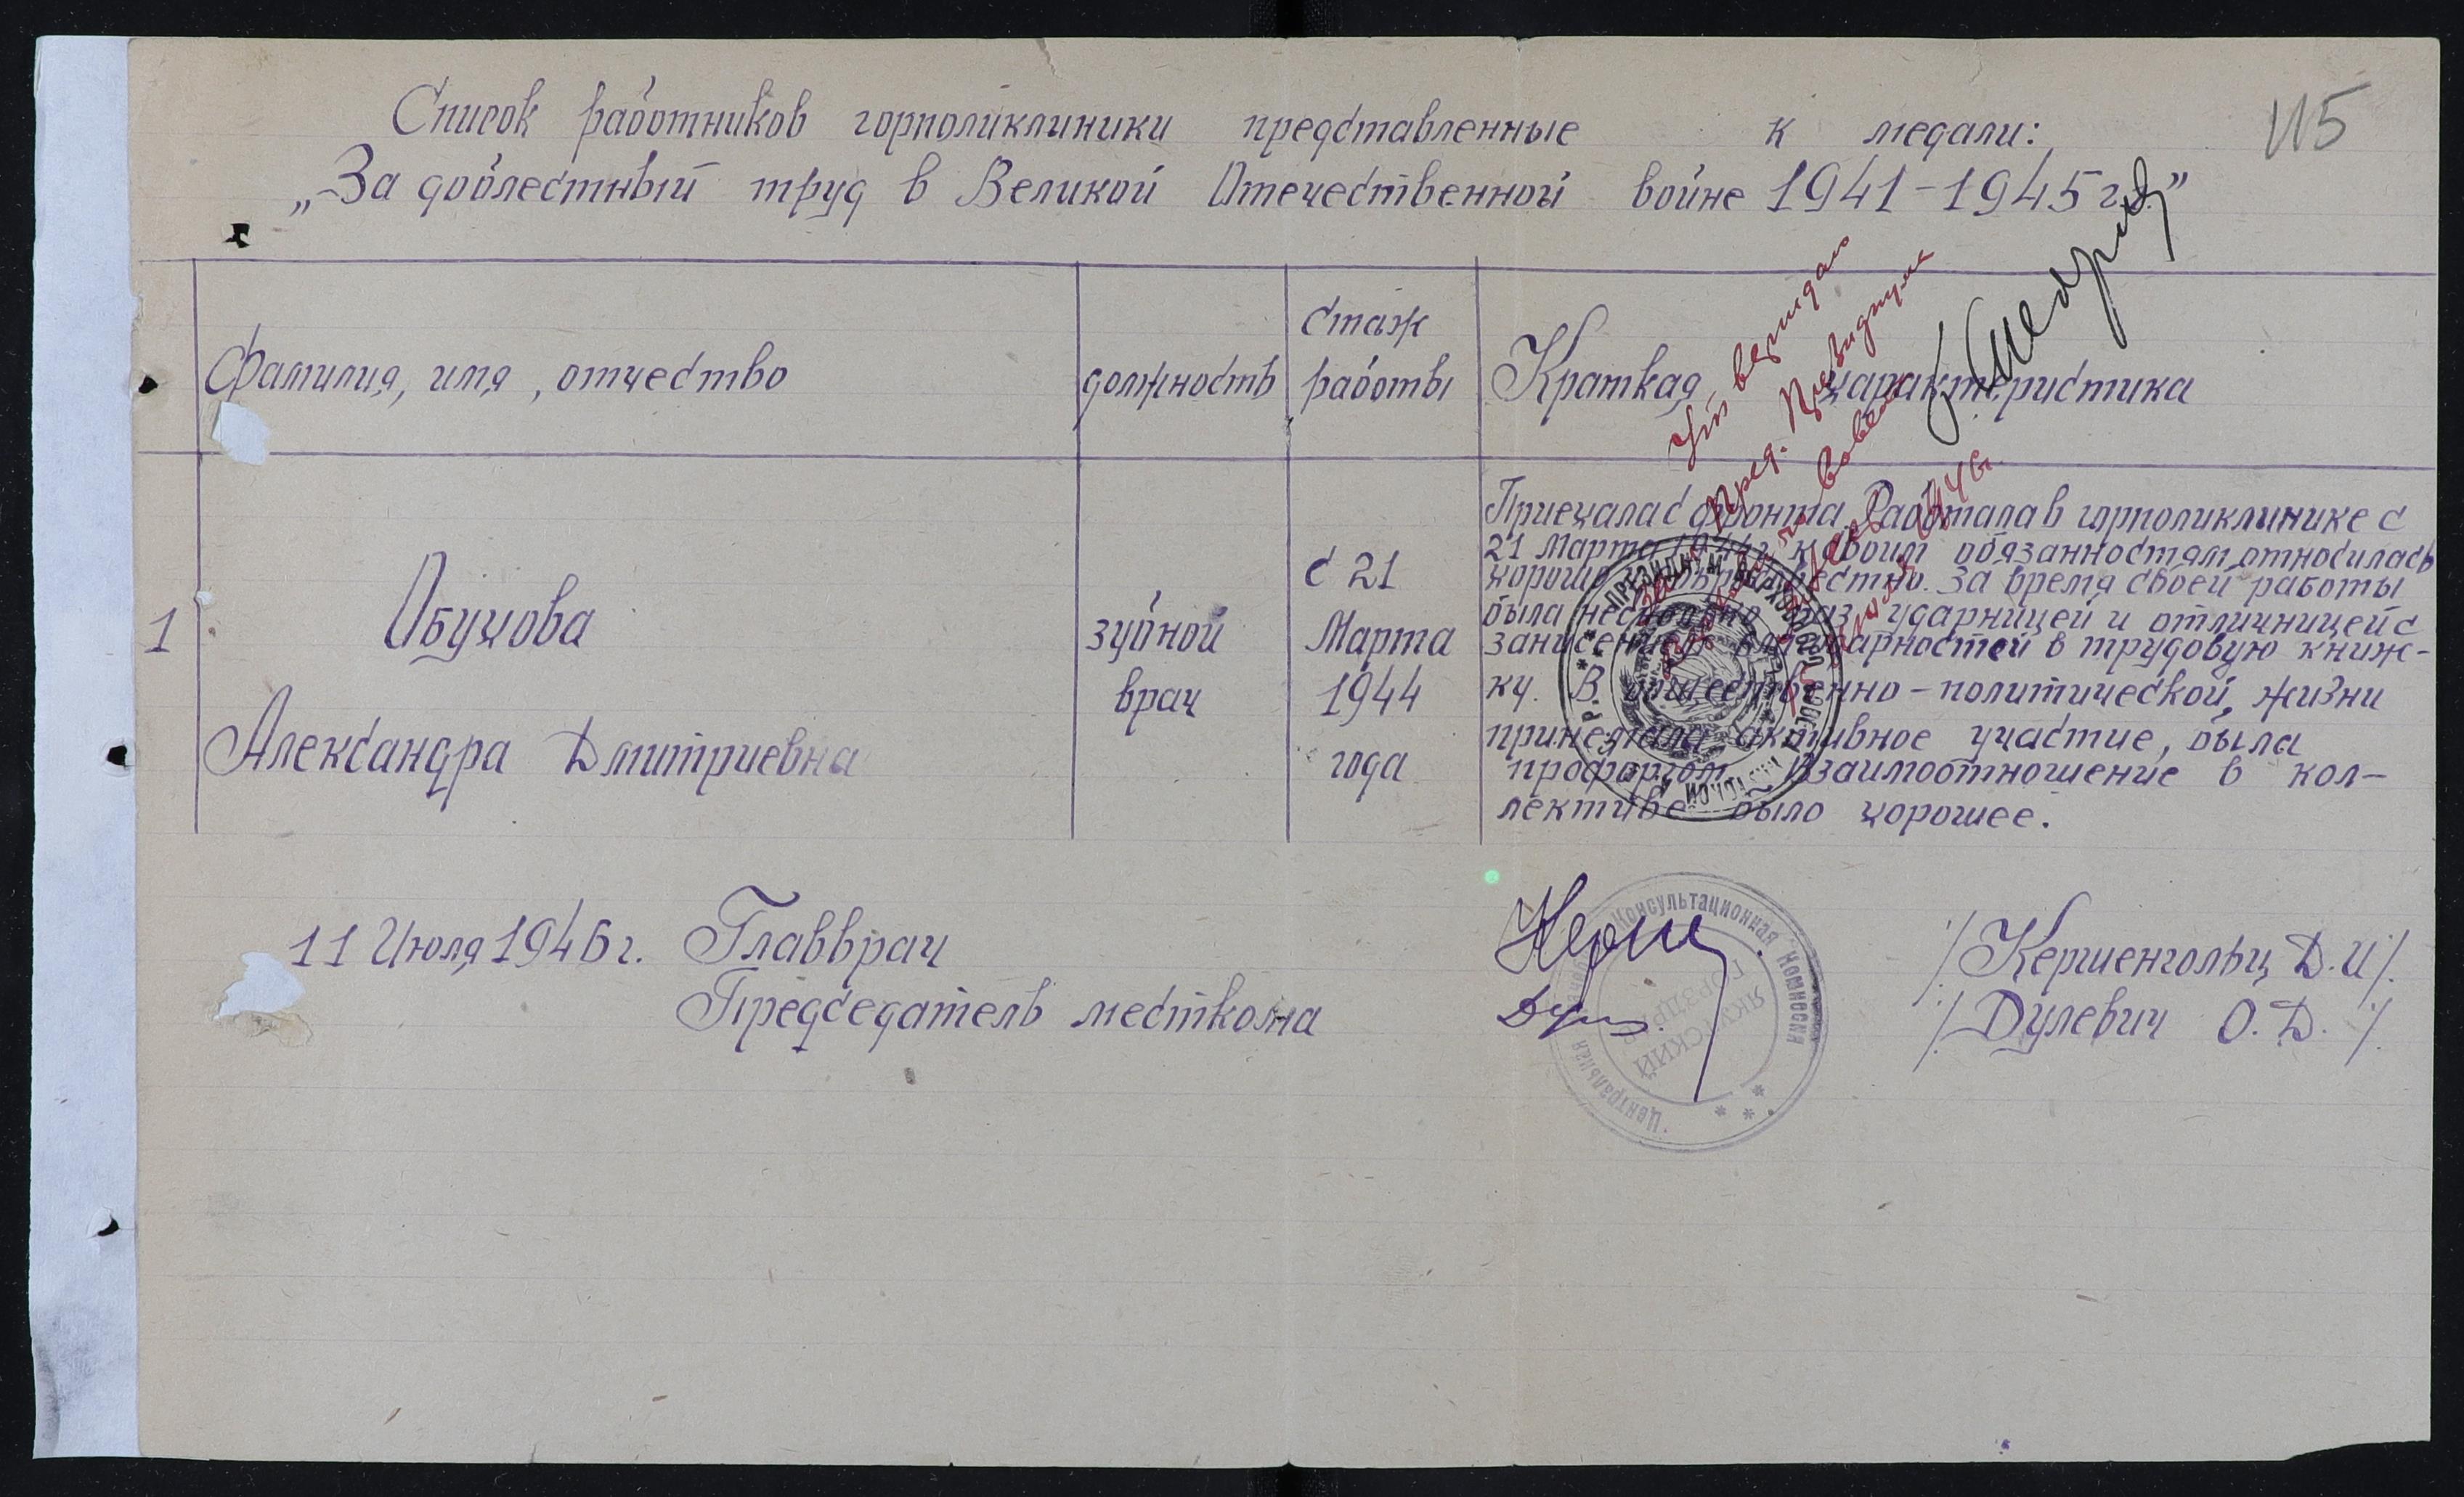 115
Список работников горполиклиники представленные к медали:
„За доблестный труд в Великой Отечественной войне 1941-1945 г.г."
Фамилия, имя, отчество
должность
стаж
работы
Краткая характеристика
Утверждаю
Пред. Президиума
1946г.
1
Обухова
Александра Дмитриевна
зубной
врач
с 21
Марта
1944
года
Приехала с фронта. Работала в горполиклинике с
21 Марта 1944г. к своим обязанностям относилась
хорошо и добросовестно. За время своей работы
была несколько раз ударницей и отличницей с
занесением благодарностей в трудовую книж-
ку. В общественно-политической, жизни
принемала активное участие, была
профоргом. Взаимоотношение в кол-
лективе было хорошее.
ПРЕЗИДИУМ ВЕРХОВНОГО
11 Июля 1946г. Главврач /Кершенгольц Д.И/.
Председатель месткома /Дулевич О.Д./
Центральная Консультационная Комиссия
ЯКУТСКИЙ
ГОРЗДРАВ